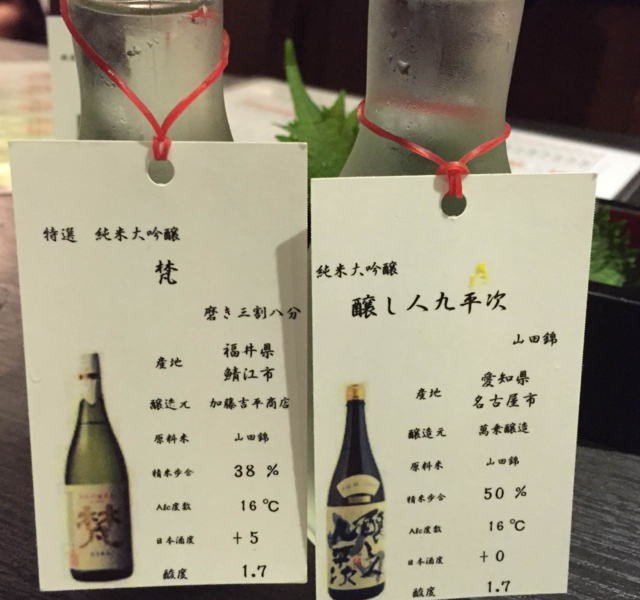 特選 純米大吟醸
梵
磨き三割八分
産地 福井県
鯖江市
醸造元 加藤吉平商店
原料米 山田錦
精米歩合 38 %
Alc度数 16 ℃
日本酒度 +5
酸度 1.7
梵
純米大吟醸
醸し人九平次
山田錦
産地 愛知県
名古屋市
醸造元 萬乗醸造
原料米 山田錦
精米歩合 50 %
Alc度数 16 ℃
日本酒度 +0
酸度 1.7
醸し人
九平次